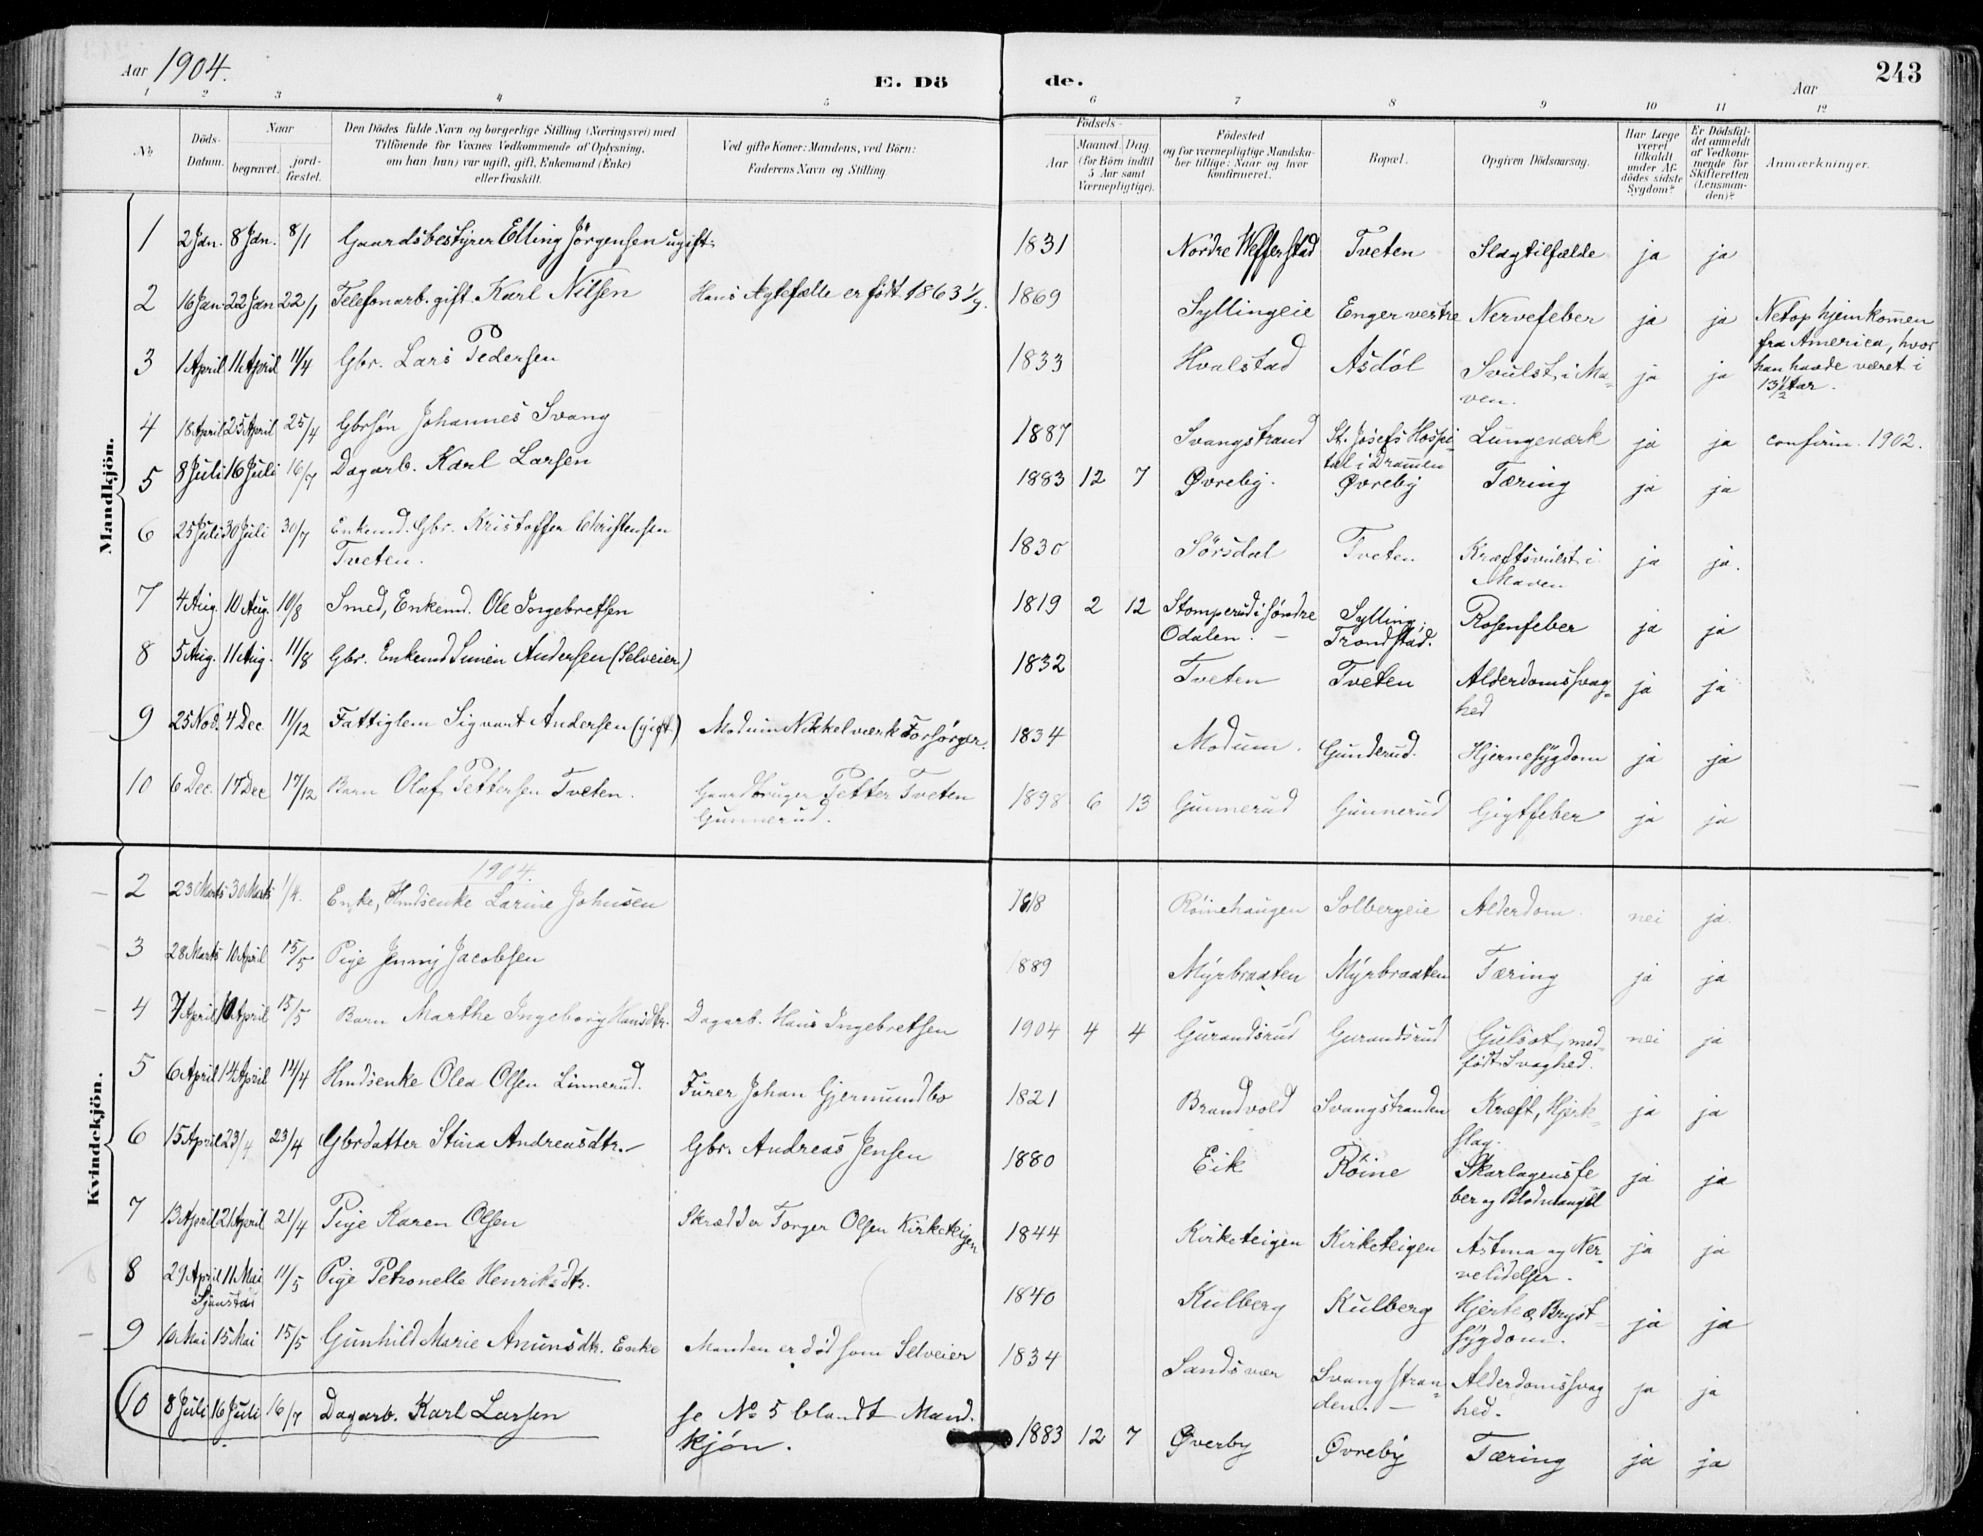 Aar 1904.
E. Dö
de.
243
Aar
1 2 3 4 5 6 7 8 9 10 11 12
No
Döds-
Datum.
Naar
begravet.
jord-
fæstet.
Den Dödes fulde Navn og borgerlige Stilling (Næringsvei) med
Tilföiende for Voxnes Vedkommende af Oplysning,
om han (hun) var ugift, gift, Enkemand (Enke)
eller fraskilt.
Ved gifte Koner: Mandens, ved Börn:
Faderens Navn og Stilling
Födsels-
Aar
Maaned. Dag
(for Börn indtil
5 Aar samt
Værnepligtige).
Födested
og for værnepligtige Mandska-
ber tillige: Naar og hvor
konfirmeret.
Bopæl.
Opgiven Dödsaarsag.
Har Læge
været
tilkaldt
under Af-
dödes sidste
Sygdom?
Er Dödsfal-
det anmeldt
af Vedkom-
mende for
Skifteretten
(Lensman-
den)?
Anmærkninger.
Mandkjön.
1 2 Jan. 8 Jan. 8/1 Gaardsbestyrer Elling Jörgensen ugift. 1831 Nordre Tveten Slagtilfælde ja ja
2 16 Jan 22 Jan 22/1 Telefonarb. gift Karl Nilsen Hans Ægtefælle er født 1863 1/9. 1869 Syllingeie Enger vestre Nervefeber ja ja Netop hjemkommen
fra America, hvor
han havde været i
13 1/2 Aar.
3 1 April 11 April 11/4 Gbr. Lars Pedersen 1833 Hvalstad Asdöl Svulst i Ma-
ven. ja ja
4 18 April 25 April 25/4 Gbrsön Johannes Svang 1887 Svangstrand St. Josefs Hospi-
tal i Drammen Lungeværk ja ja confirm. 1902.
5 8 Juli 16 Juli 16/7 Dagarb. Karl Larsen 1883 12 7 Øvreby. Øvreby Tæring ja ja
6 25 Juli 30 Juli 30/7 Enkemd. Gbr. Kristoffer Christensen
Tveten. 1830 Sörsdal Tveten Kræftsvulst i
Maven ja ja.
7 4 Aug. 10 Aug. 10/8 Smed, Enkemd. Ole Ingebretsen 1819 2 12 Stomperud i söndre
Odalen. Sylling;
Trondstad. Rosenfeber ja ja
8 5 Aug. 11 Aug. 11/8 Gbr. Enkemd Simen Andersen (Selveier) 1832 Tveten Tveten Alderdomssvag-
hed ja ja
9 25 Nov. 4 Dec. 11/12 Fattiglem Sigvart Andersen (gift) Modum Nikkelværk Forsörger. 1834 Modum. Gunderud. Hjernesygdom ja ja
10 6 Dec. 17 Dec 17/12 Barn Olaf Pettersen Tveten. Gaardbruger Petter Tveten
Gunnerud. 1898 6 13 Gunnerud Gunnerud Gigtfeber ja ja
Kvindekjön.
1904.
2 23 Marts 30 Marts 1/4. Enke, Hmdsenke Larine Johnsen 1818 Röinehaugen Solbergeie Alderdom. nei ja.
3 28 Marts 10 April 15/5 Pige Jenny Jacobsen 1889 Myrbraaten Myrbraaten Tæring ja ja
4 7 April 10 April 15/5 Barn Marthe Ingeborg Hansdtr. Dagarb. Hans Ingebretsen 1904 4 4 Gurandsrud Gurandsrud Gulsot, med-
født Svaghed. nei ja
5 6 April 14 April 14/4 Hmdsenke Olea Olsen Linnerud. Furer Johan Gjermundbo 1821 Brandvold Svangstranden Kræft, Hjerte-
slag. ja ja
6 15 April 23/4 23/4 Gbrdatter Stina Andreasdtr. Gbr. Andreas Jensen 1880 Eik Röine Skarlagensfe
ber og Blodmangel ja ja
7 13 April 21 April 21/4 Pige Karen Olsen Skrædder Torger Olsen Kirketeigen 1844 Kirketeigen Kirketeigen Astma og Ner-
velidelser. ja ja
8 29 April 11 Mai 11/5 Pige Petronelle Henriksdtr. 1840 Kulberg Kulberg Hjerte & Bryst-
sygdom. ja ja
9 10 Mai 15 Mai 15/5 Gunhild Marie Amunsdtr. Enke Manden er död som Selveier 1834 Sandsvær Svangstran-
den. Alderdomssvag
hed. ja ja
10 8 Juli 16 Juli 16/7 Dagarb. Karl Larsen se No 5 blandt Mand.
kjön. 1883 12 7 Øverby Øvreby Tæring ja ja